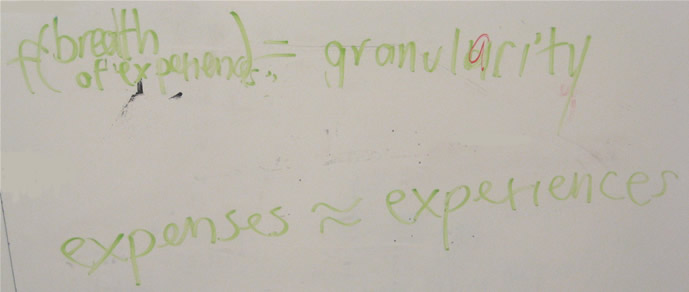 f(breath of experience) = granularity
expenses ≈ experiences